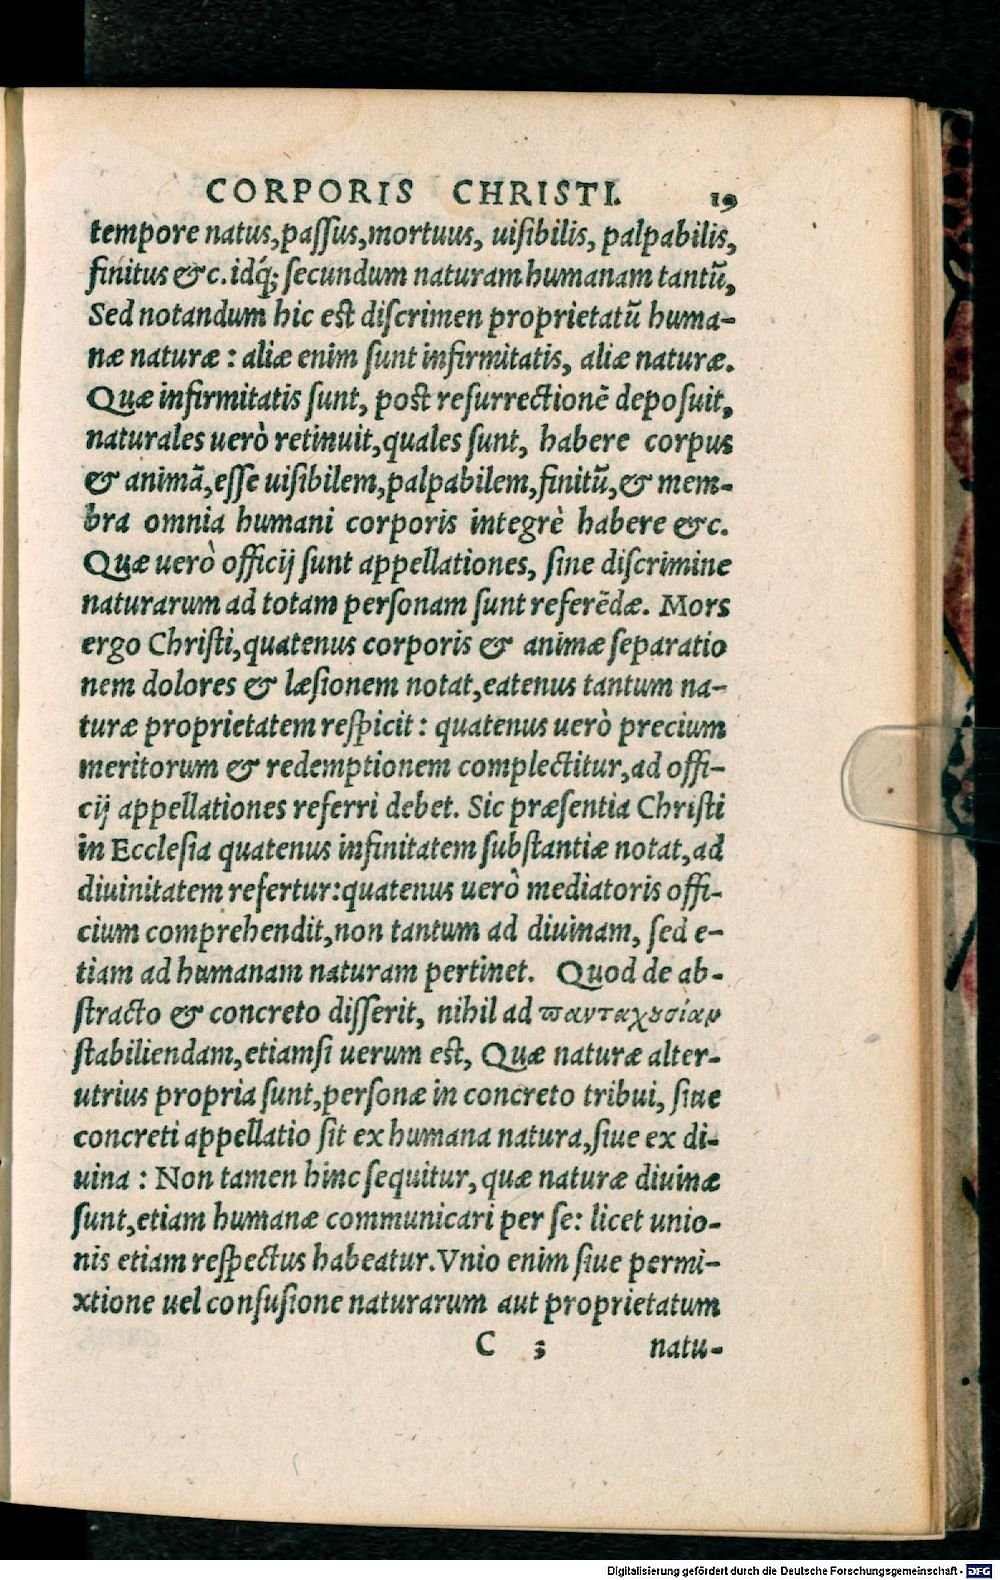 CORPORIS CHRISTI. 19
tempore natus, passus, mortuus, uisibilis, palpabilis,
finitus &c. idq́; secundum naturam humanam tantũ,
Sed notandum hic est discrimen proprietatũ huma-
næ naturæ : aliæ enim sunt infirmitatis, aliæ naturæ.
Quæ infirmitatis sunt, post resurrectionẽ deposuit,
naturales uerò retinuit, quales sunt, habere corpus
& animã, esse uisibilem, palpabilem, finitũ, & mem-
bra omnia humani corporis integrè habere &c.
Quæ uerò officij sunt appellationes, sine discrimine
naturarum ad totam personam sunt referẽdæ. Mors
ergo Christi, quatenus corporis & animæ separatio
nem dolores & læsionem notat, eatenus tantum na-
turæ proprietatem respicit : quatenus uerò precium
meritorum & redemptionem complectitur, ad offi-
cij appellationes referri debet. Sic præsentia Christi
in Ecclesia quatenus infinitatem substantiæ notat, ad
diuinitatem refertur: quatenus uerò mediatoris offi-
cium comprehendit, non tantum ad diuinam, sed e-
tiam ad humanam naturam pertinet. Quod de ab-
stracto & concreto disserit, nihil ad πανταχουσίαν
stabiliendam, etiamsi uerum est, Quæ naturæ alter-
utrius propria sunt, personæ in concreto tribui, siue
concreti appellatio sit ex humana natura, siue ex di-
uina : Non tamen hinc sequitur, quæ naturæ diuinæ
sunt, etiam humanæ communicari per se: licet unio-
nis etiam respectus habeatur. Vnio enim siue permi-
xtione uel confusione naturarum aut proprietatum
C 3 natu-
Digitalisierung gefördert durch die Deutsche Forschungsgemeinschaft - DFG